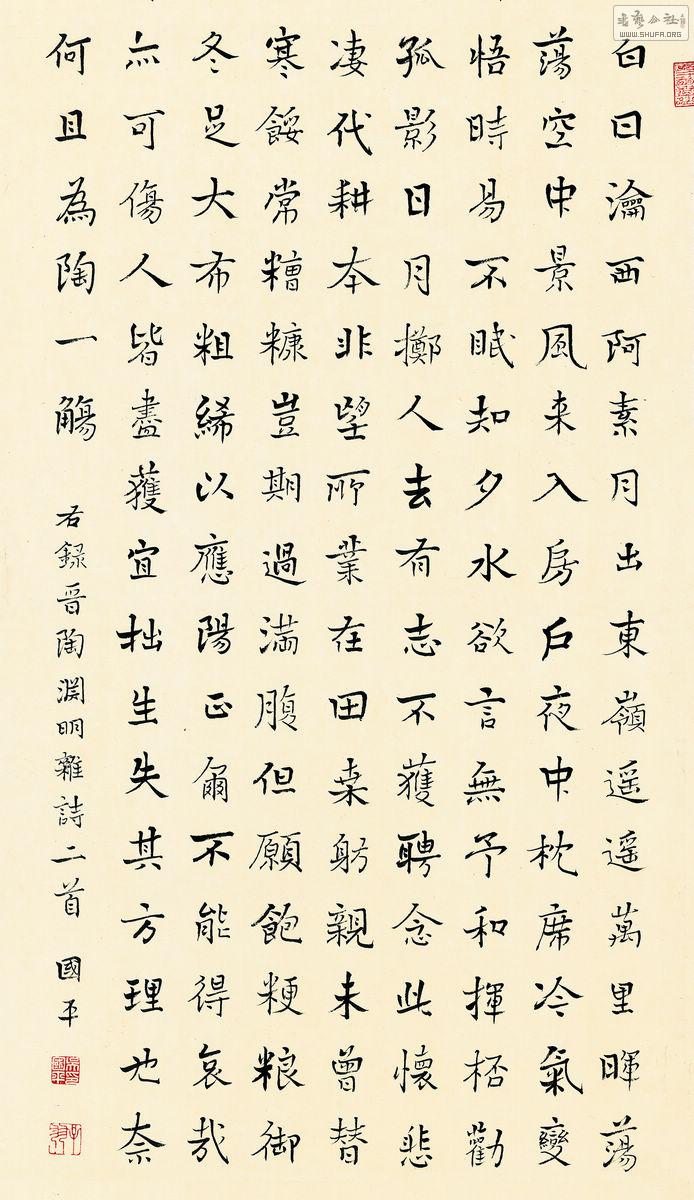 白日瀹西阿素月出東嶺遥遥萬里暉蕩
蕩空中景風来入房户夜中枕席冷氣變
悟時易不眠知夕水欲言無予和揮桮勸
孤影日月擲人去有志不獲聘念此懷悲
凄代耕本非望所業在田桒躬親未曾替
寒餒常糟糠豈期過滿腹但願飽粳粮御
冬足大布粗絺以應陽正爾不能得哀哉
亦可傷人皆盡獲宜拙生失其方理也奈
何且為陶一觴
右録晉陶淵明雜詩二首 國平
WWW.SHUFA.ORG